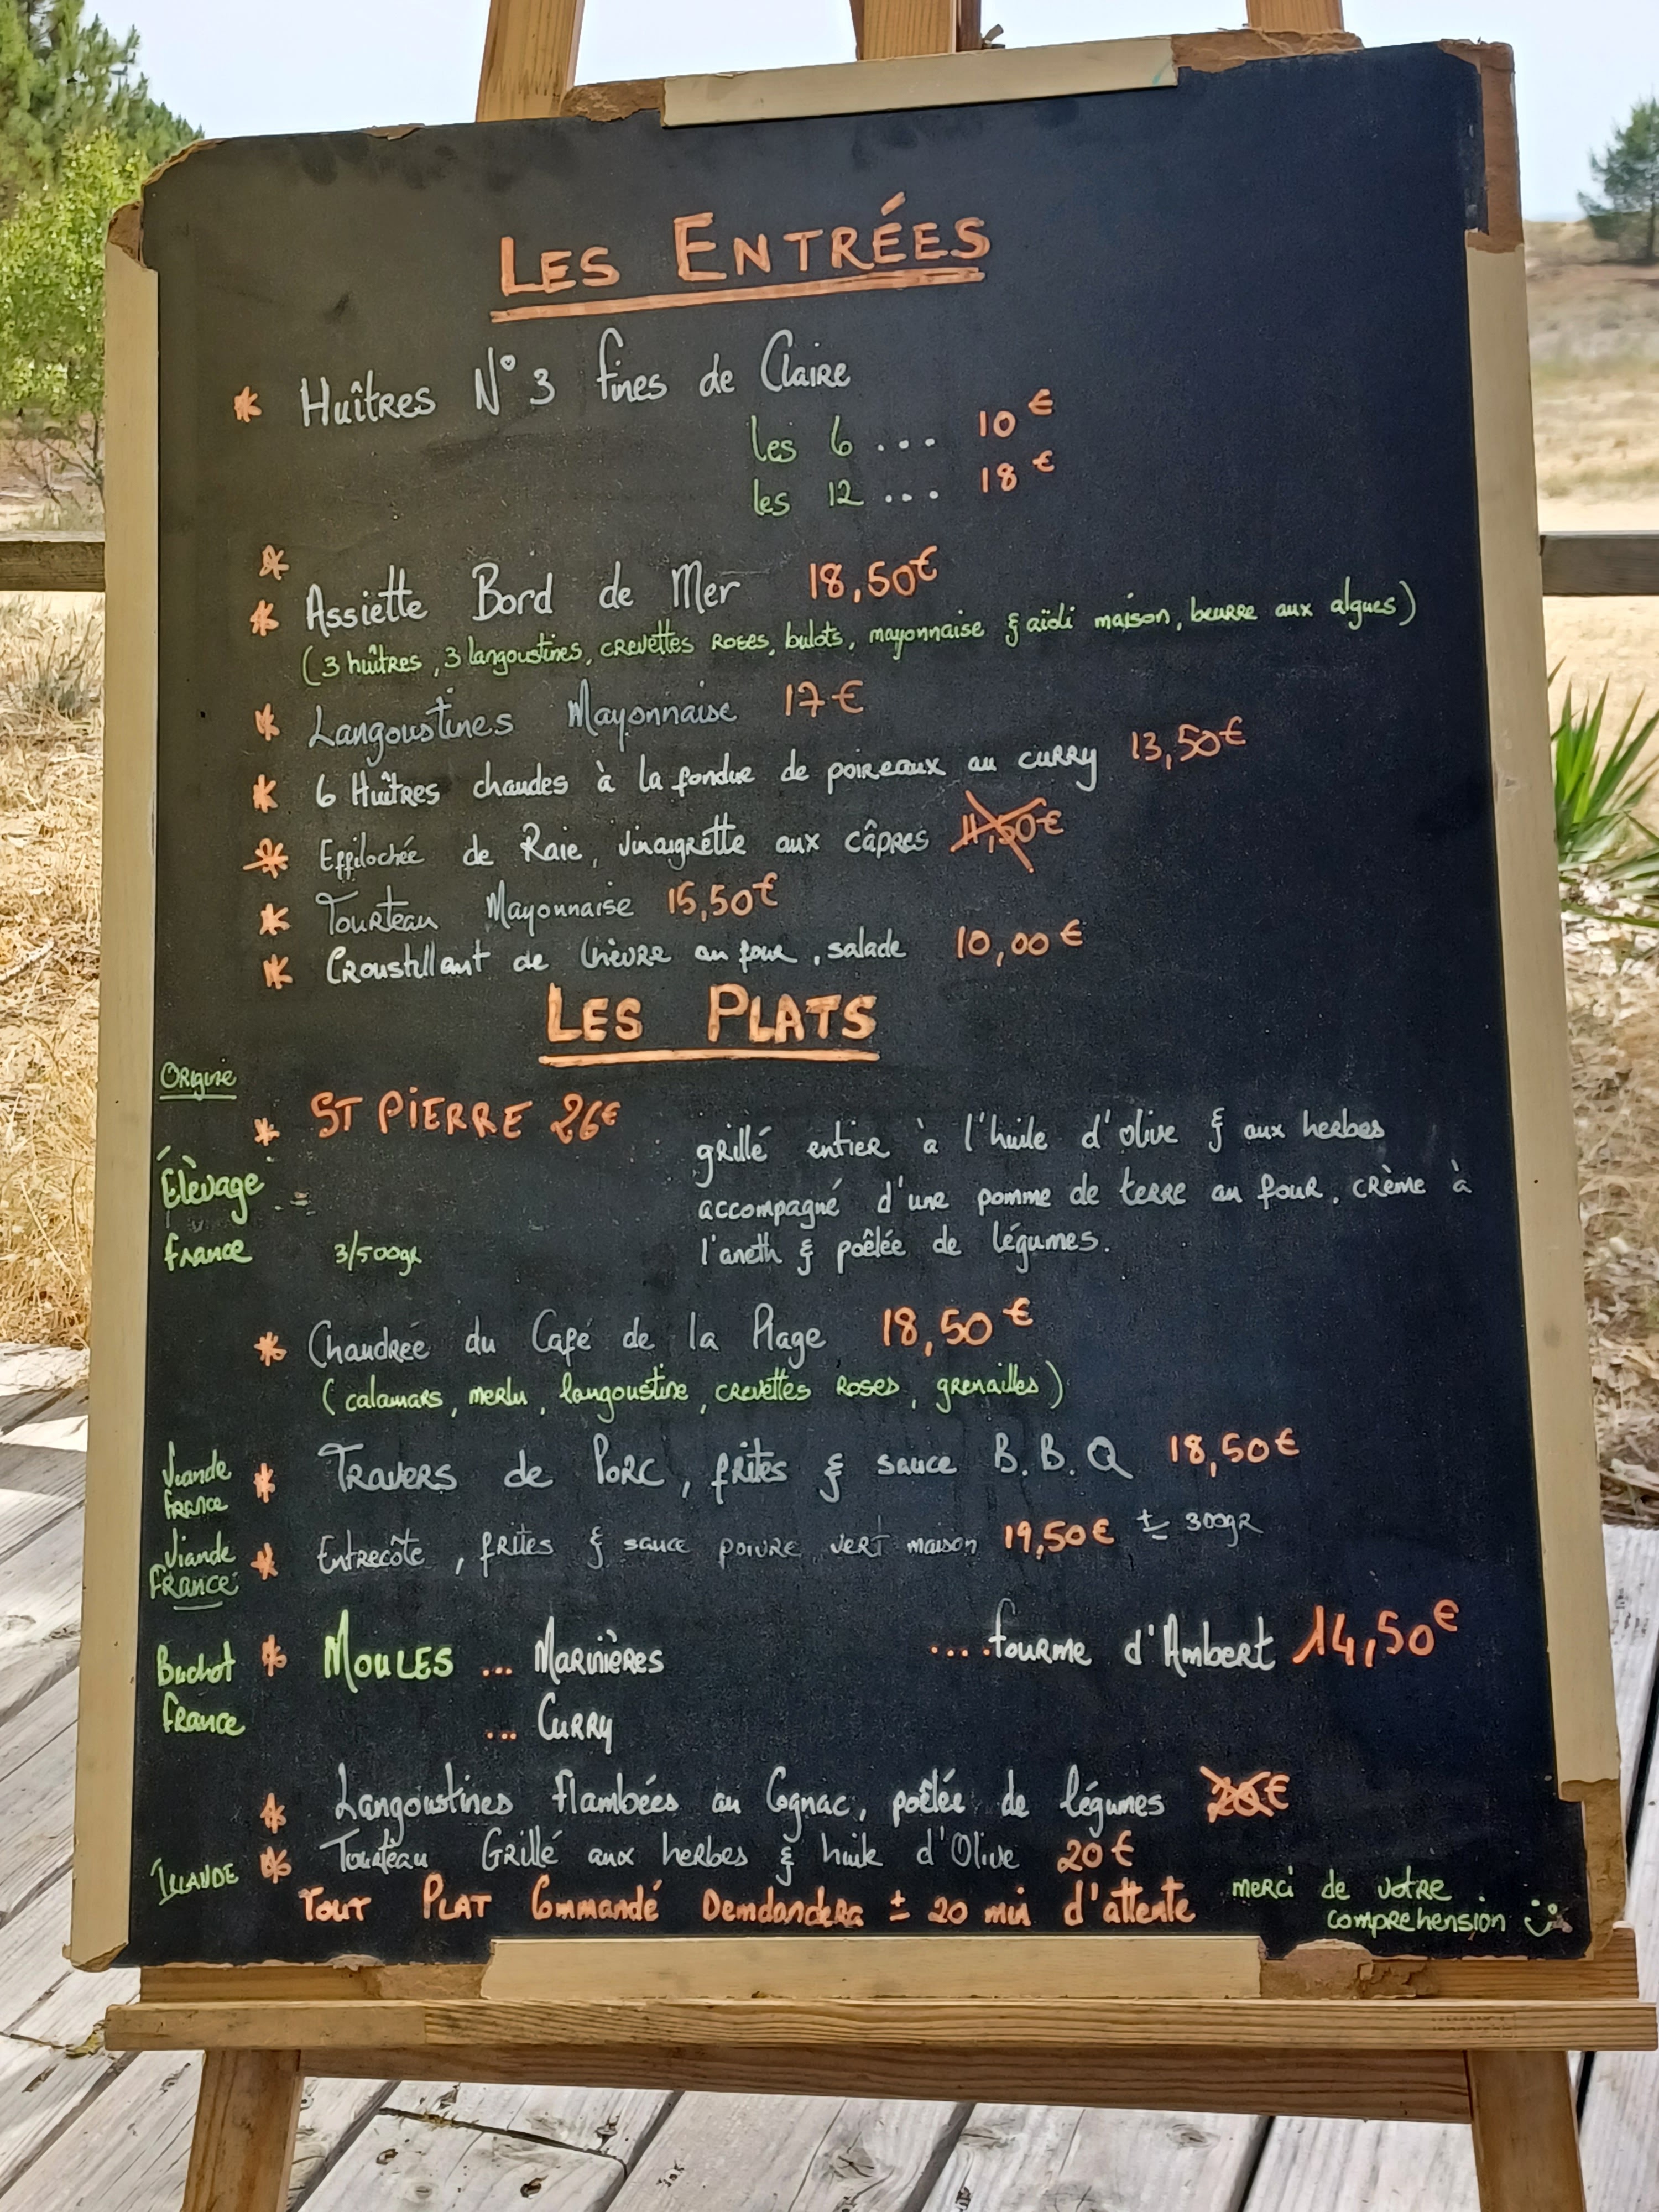 LES ENTRÉES
* Huîtres N°3 fines de Claire
les 6 ... 10€
les 12 ... 18€
*
* Assiette Bord de Mer 18,50€
(3 huîtres, 3 langoustines, crevettes roses, bulots, mayonnaise & aïoli maison, beurre aux algues)
* Langoustines Mayonnaise 17€
* 6 Huîtres chaudes à la fondue de poireaux au curry 13,50€
* Effilochée de Raie, vinaigrette aux câpres 11,50€
* Tourteau Mayonnaise 15,50€
* Croustillant de Chèvre au four, salade 10,00€
LES PLATS
Origine
* ST PIERRE 26€
grillé entier à l'huile d'olive & aux herbes
accompagné d'une pomme de terre au four, crème à
l'aneth & poêlée de légumes.
Élevage
France 3/500gr
* Chaudrée du Café de la Plage 18,50€
(calamars, merlu, langoustine, crevettes roses, grenailles)
Viande France * Travers de Porc, frites & sauce B.B.Q 18,50€
Viande France * Entrecôte, frites & sauce poivre vert maison 19,50€ ± 300gr
Buchot * MOULES ... Marinières ....fourme d'Ambert 14,50€
France ... Curry
* Langoustines flambées au Cognac, poêlée de légumes 26€
IRLANDE * Tourteau Grillé aux herbes & huile d'Olive 20€
TOUT PLAT Commandé Demdandera ± 20 min d'attente
merci de votre
comprehension